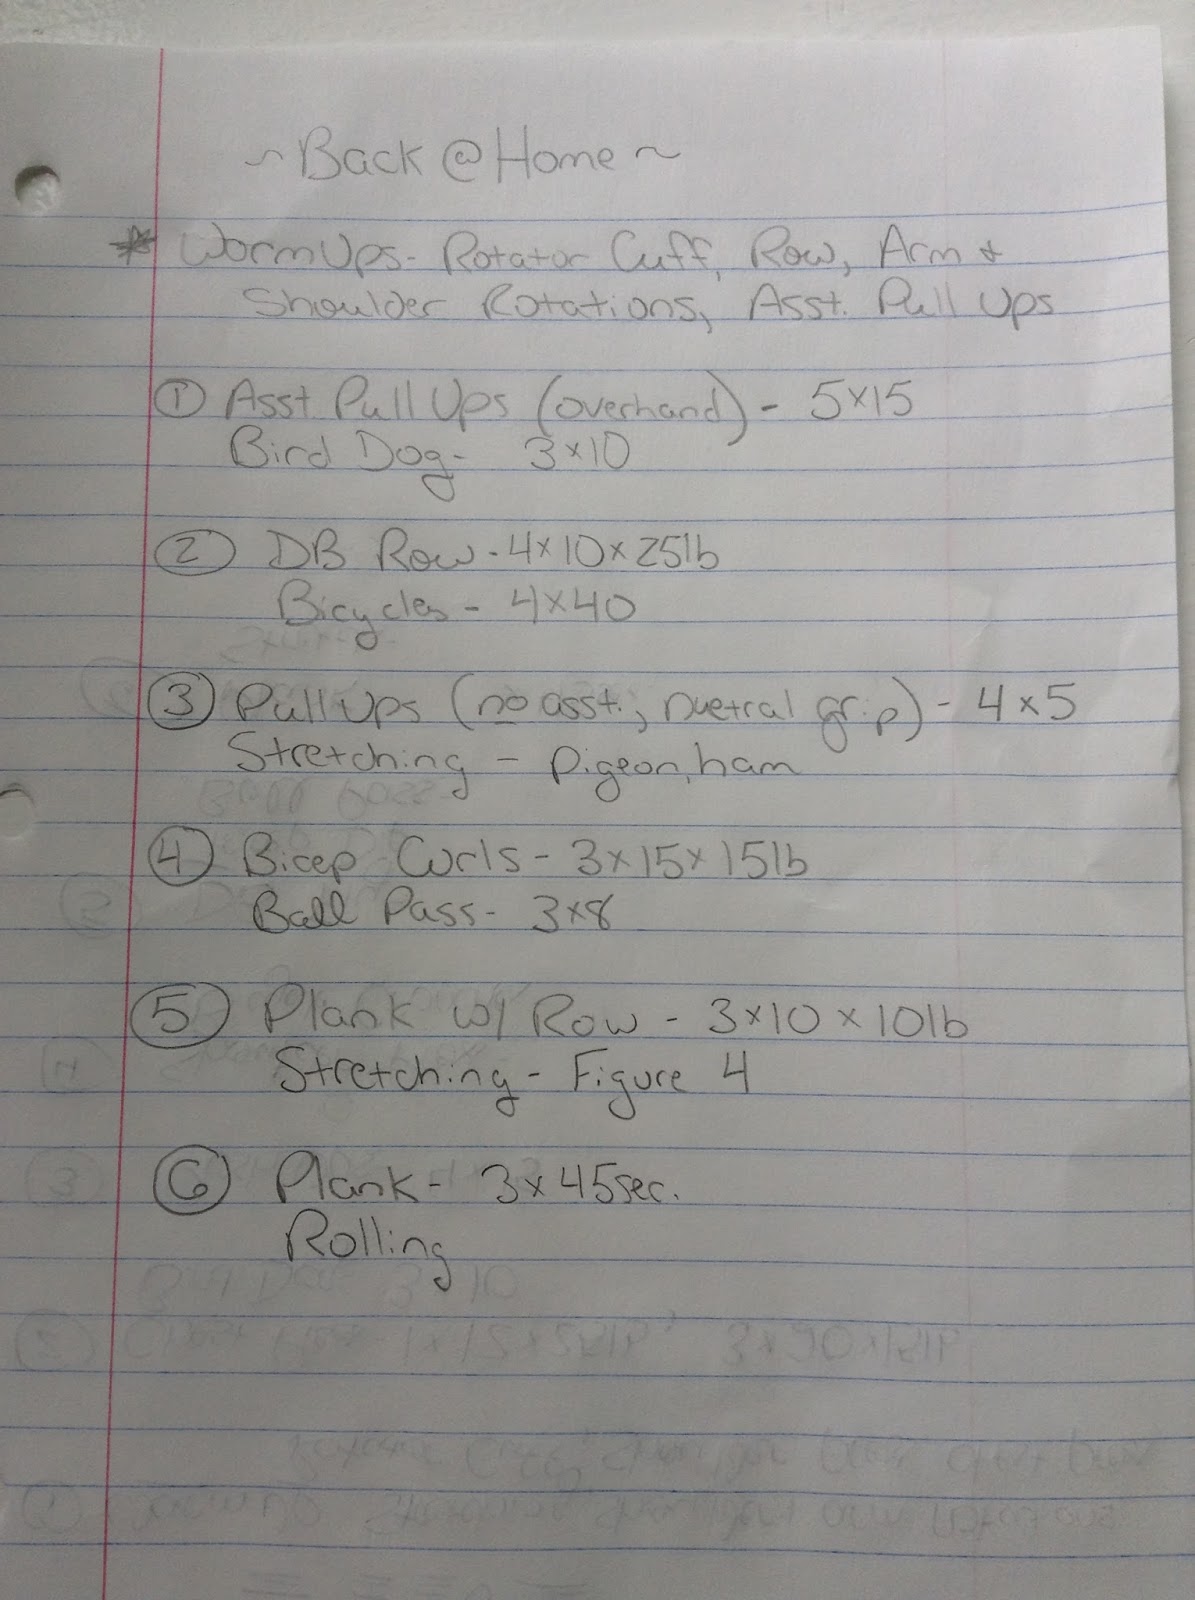 ~ Back @ Home ~
* WarmUps - Rotator Cuff, Row, Arm &
Shoulder Rotations, Asst. Pull Ups
① Asst Pull Ups (overhand) - 5x15
Bird Dog - 3x10
② DB Row - 4x10x25lb
Bicycles - 4x40
③ Pull Ups (no asst., nuetral grip) - 4x5
Stretching - pigeon, ham
④ Bicep Curls - 3x15x15lb
Ball Pass - 3x8
⑤ Plank w/ Row - 3x10x10lb
Stretching - Figure 4
⑥ Plank - 3x45sec.
Rolling